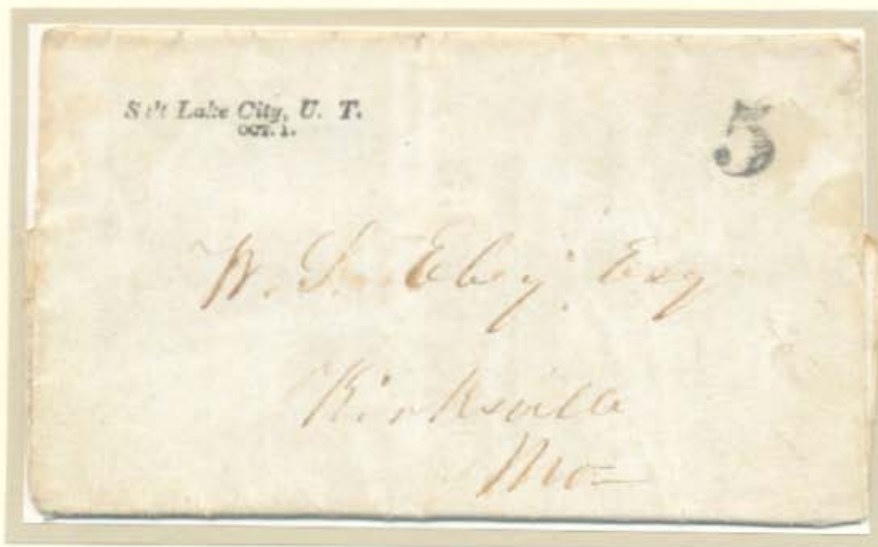 Salt Lake City, U. T.
OCT. 1.
5
W. S. Eby. Esq
Kirksville
Mo